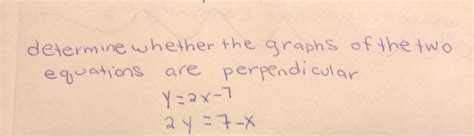 determine whether the graphs of the two
equations are perpendicular
y=2x-7
2y=7-x